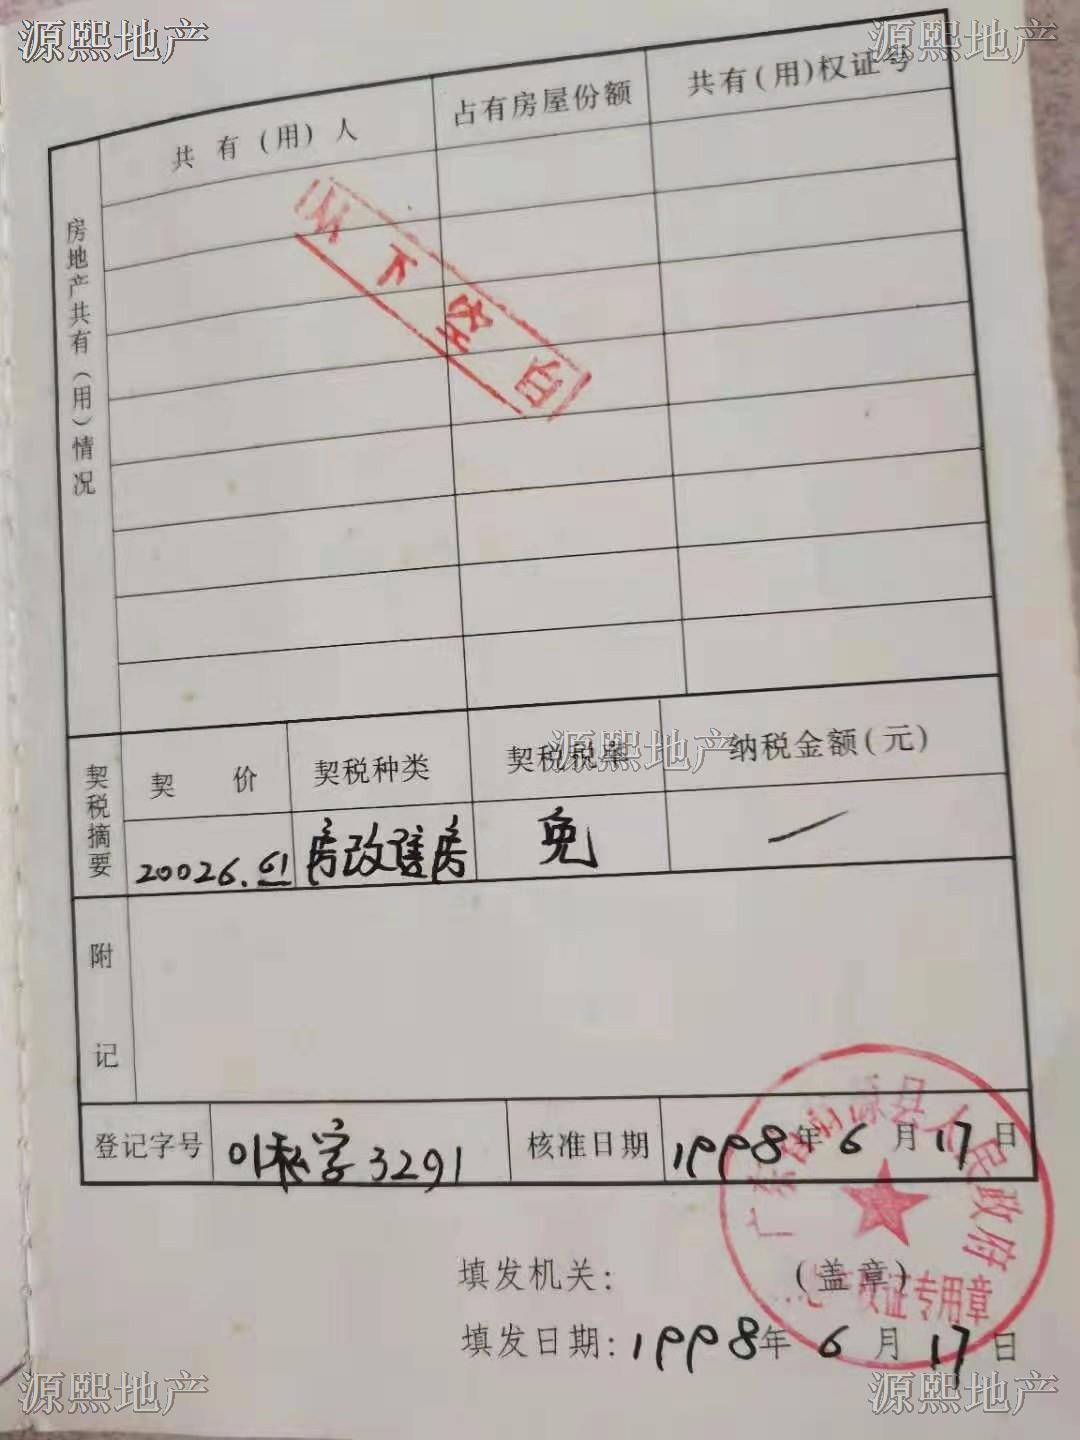 源熙地产 源熙地产
共有(用)人 占有房屋份额 共有(用)权证号
房地产共有(用)情况
以下空白
源熙地产
契税摘要
契 价 契税种类 契税税率 纳税金额(元)
20026.61 房改售房 免 —
附记
登记字号 01私字3291 核准日期 1998年6月17日
填发机关: (盖章)
填发日期: 1998年6月17日
源县人民政府
权证专用章
源熙地产 源熙地产